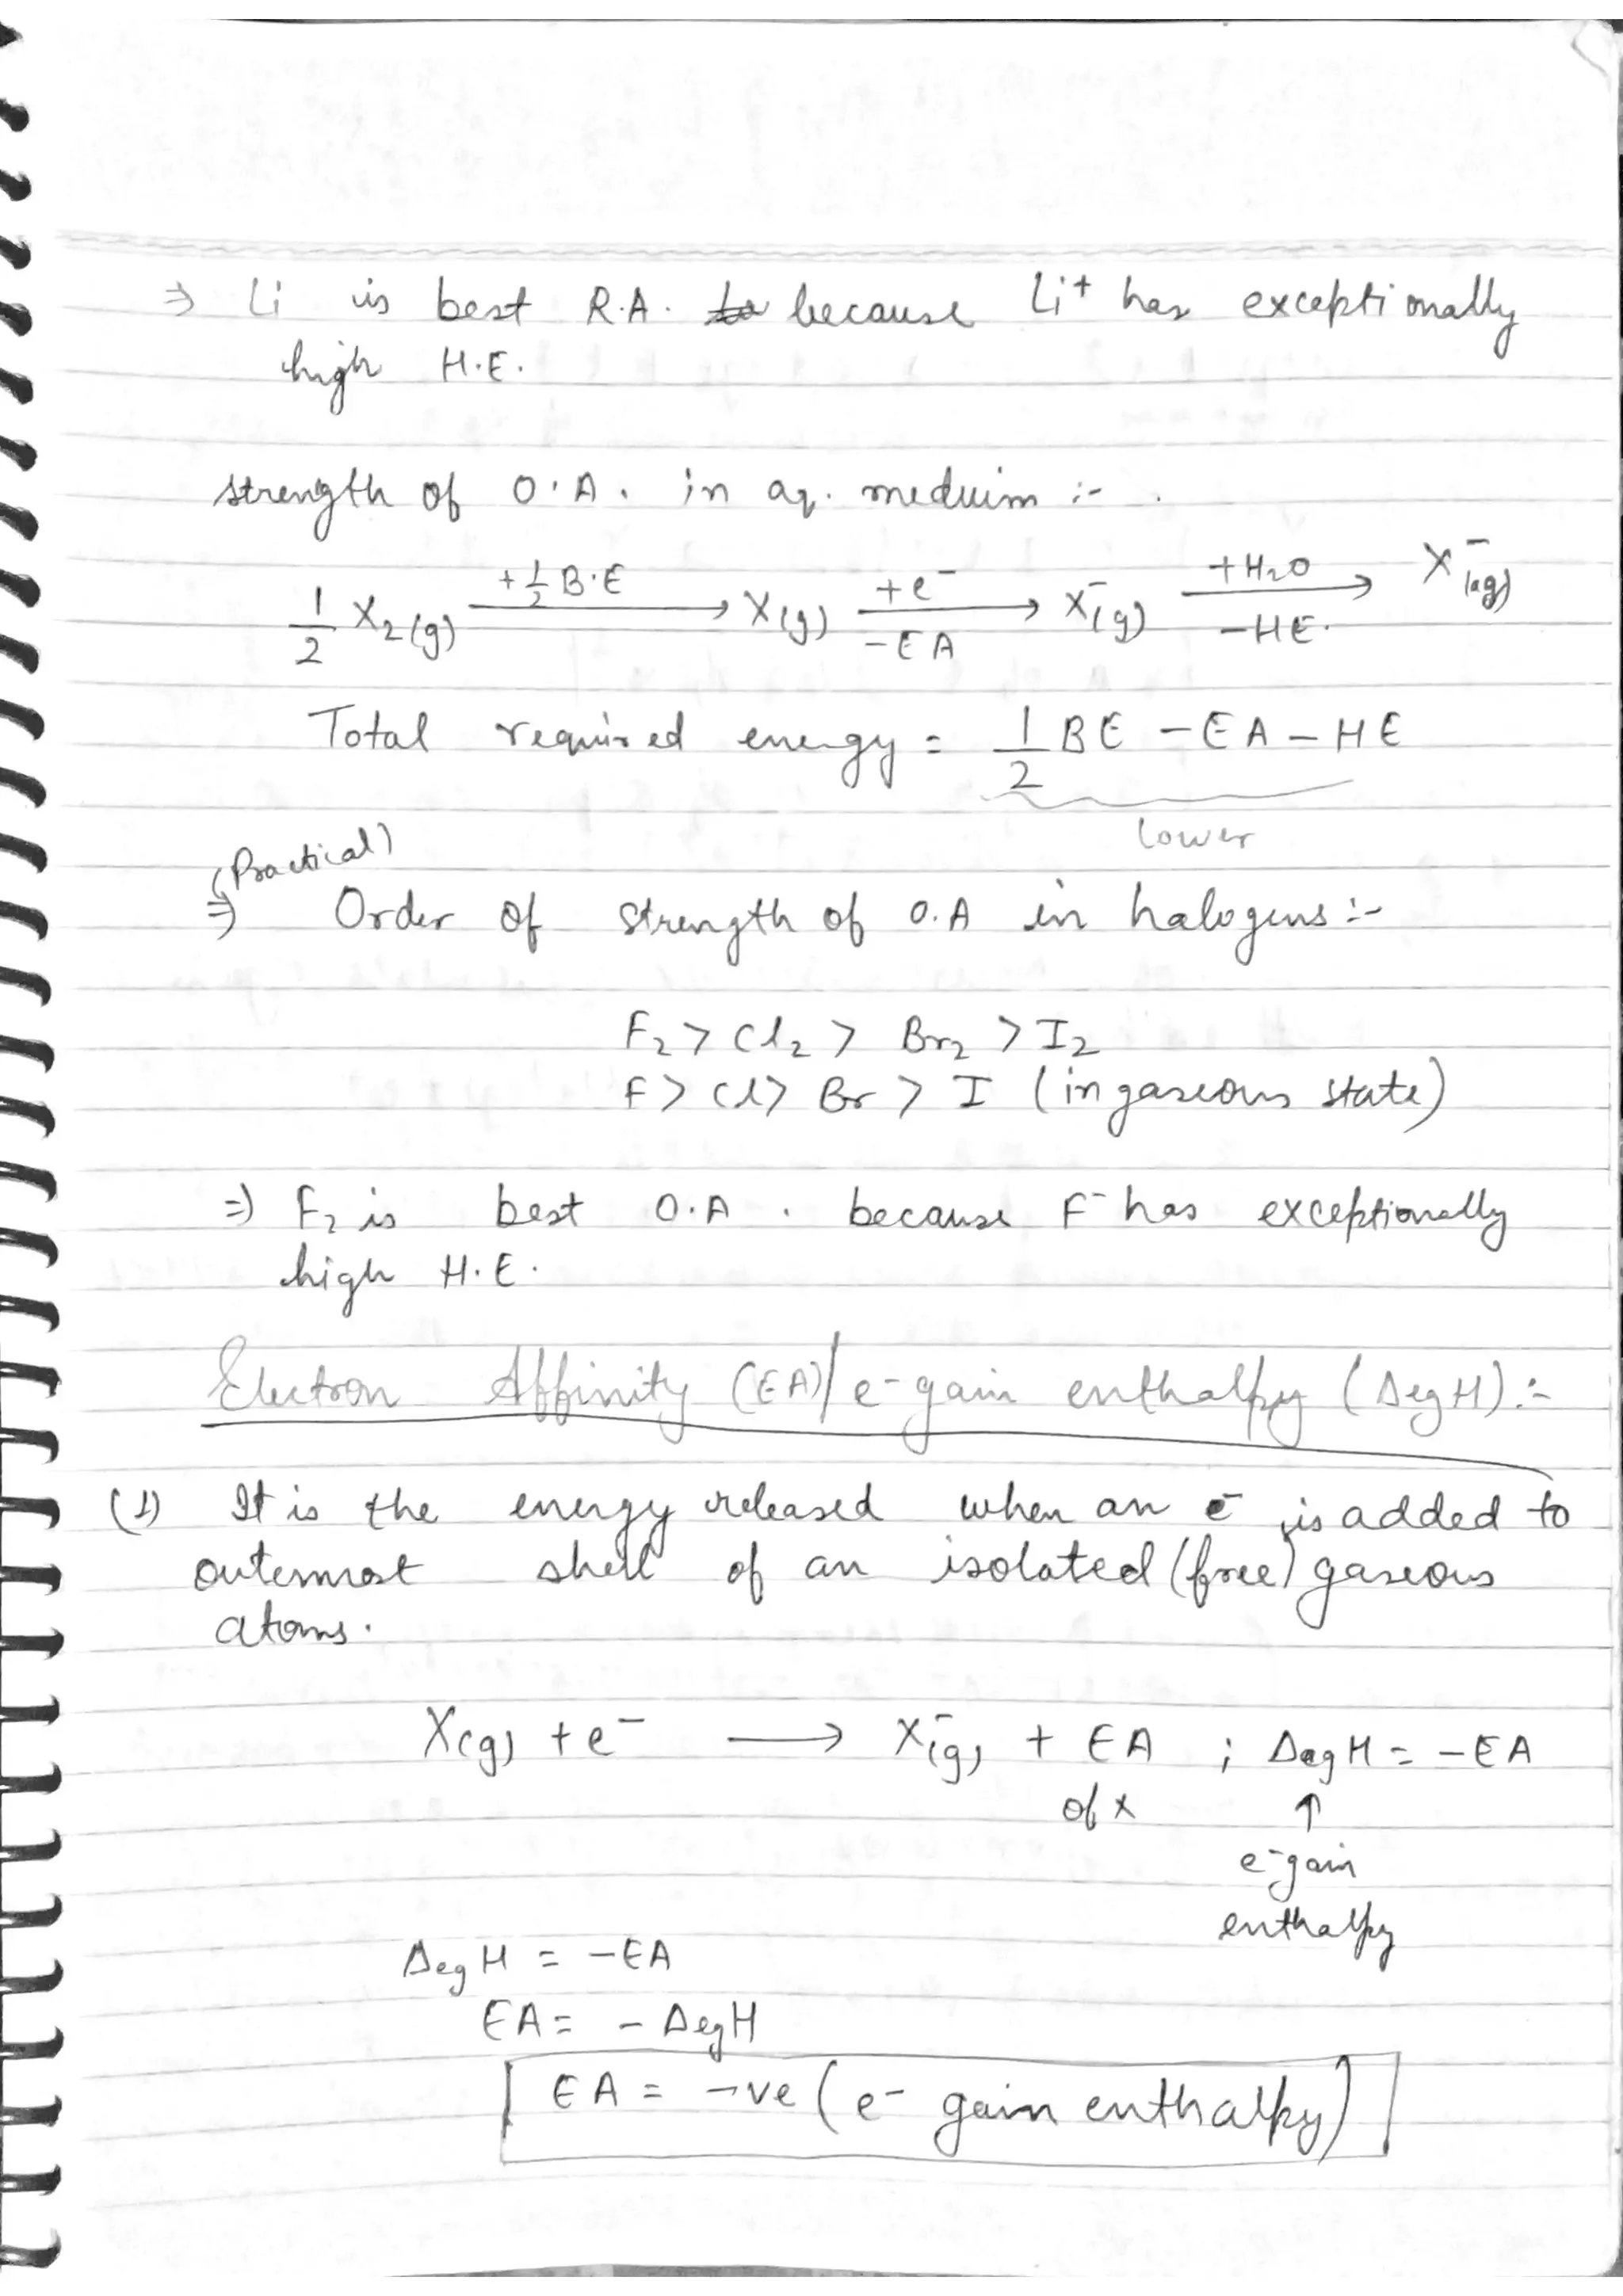 ⇒ Li is best R.A. because Li⁺ has exceptionally
high H.E.
strength of O.A. in aq. meduim :-
1/2 X₂(g) —(+1/2 B.E)→ X(g) —(+e⁻ / -EA)→ X⁻(g) —(+H₂O / -HE.)→ X⁻(aq)
Total required energy = 1/2 BE - EA - HE
lower
(Practical)
⇒ Order of strength of O.A in halogens :-
F₂ > Cl₂ > Br₂ > I₂
F > Cl > Br > I (in gaseous state)
⇒ F₂ is best O.A. because F⁻ has exceptionally
high H.E.
Electron Affinity (EA)/e⁻gain enthalpy (ΔegH) :-
(1) It is the energy released when an e⁻ is added to
outermost shell of an isolated (free) gaseous
atoms.
X(g) + e⁻ ⟶ X⁻(g) + EA ; ΔegH = -EA
of x ↑
e⁻gain
enthalpy
ΔegH = -EA
EA = - ΔegH
EA = -ve (e⁻ gain enthalpy)